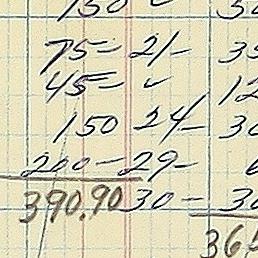 150 ✓
75– 21– 35
45– ✓ 12
150 24– 30
200– 29– 6
390.90 30– 30
365